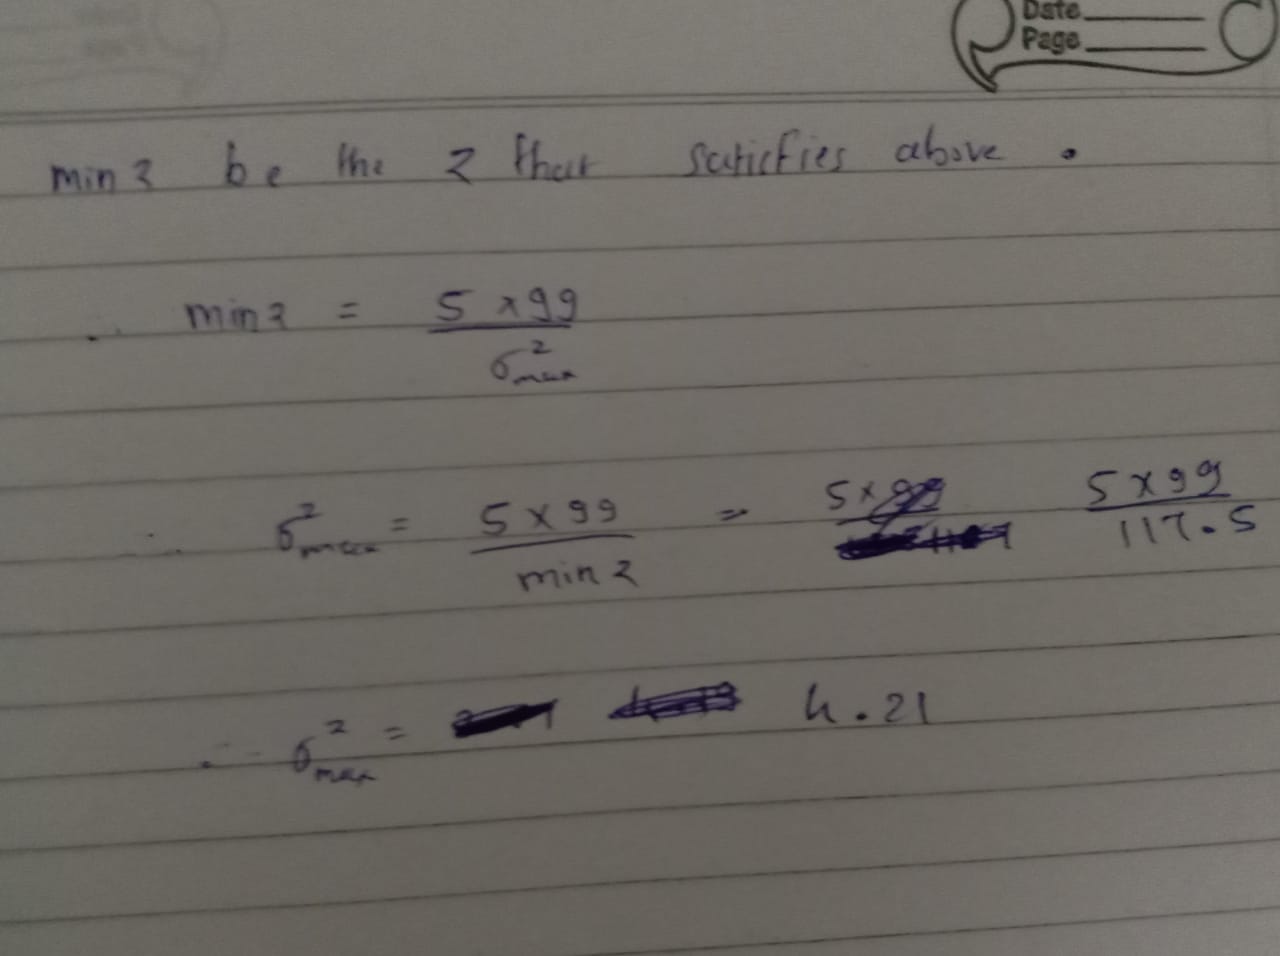 Date
Page
min z be the z that saticfies above .
∴ min z = 5 × 99 / σ²max
∴ σ²max = 5 × 99 / min z = 5 × 99 / 117.5
∴ σ²max = 4.21